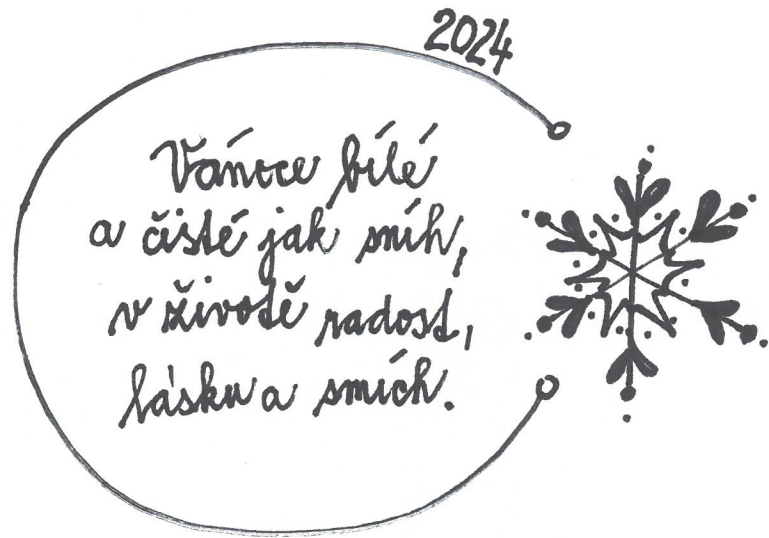 2024
Vánoce bílé
a čisté jak sníh,
v životě radost,
lásku a smích.